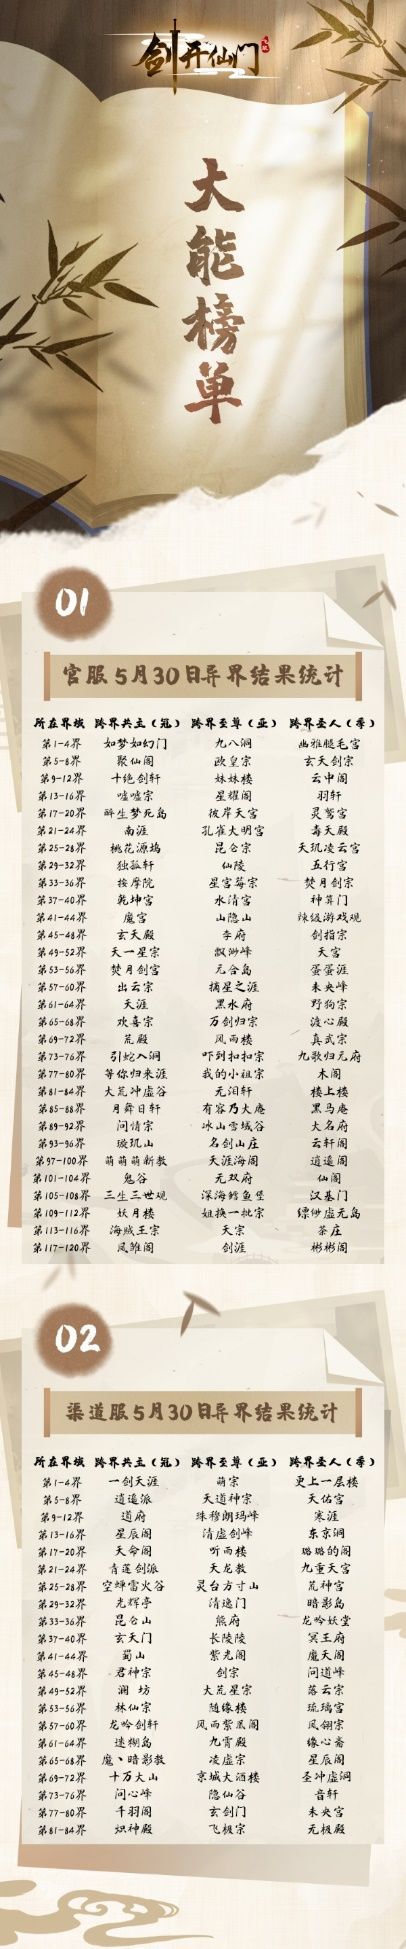 剑开仙门
大能榜单
01
官服5月30日异界结果统计
所在界域 跨界共主（冠） 跨界至尊（亚） 跨界圣人（季）
第1-4界 如梦如幻门 九八洞 幽雅腿毛宫
第5-8界 聚仙阁 欧皇宗 玄天剑宗
第9-12界 十绝剑轩 妹妹楼 云中阁
第13-16界 嘘嘘宗 星耀阁 羽轩
第17-20界 醉生梦死岛 彼岸天宫 灵鹫宫
第21-24界 南涯 孔雀大明宫 毒天殿
第25-28界 桃花源坞 昆仑宗 天玑凌云宫
第29-32界 独孤轩 仙陵 五行宫
第33-36界 按摩院 星宫莓宗 焚月剑宗
第37-40界 乾坤宫 水清宫 神算门
第41-44界 魔宫 山隐山 辣级游戏观
第45-48界 玄天殿 李府 剑指宗
第49-52界 天一星宗 飘渺峰 天宫
第53-56界 焚月剑宫 元合岛 蛋蛋涯
第57-60界 出云宗 摘星之涯 未央峰
第61-64界 天涯 黑水府 野狗宗
第65-68界 欢喜宗 万剑归宗 渡心殿
第69-72界 荒殿 风雨阁 真武宗
第73-76界 引蛇入洞 吓到扣扣宗 九歌归元府
第77-80界 等你归来涯 我的小祖宗 木阁
第81-84界 大荒冲虚谷 元泪轩 楼上楼
第85-88界 月舞日轩 有容乃大庵 黑马庵
第89-92界 问情宗 冰山雪域谷 大名府
第93-96界 璇玑山 名剑山庄 云轩阁
第97-100界 萌萌萌新教 天涯海阁 逍遥阁
第101-104界 鬼谷 无双府 仙阁
第105-108界 三生三世观 深海鳕鱼堡 汉基门
第109-112界 妖月楼 姐换一批宗 缥缈虚无岛
第113-116界 海贼王宗 天宗 茶庄
第117-120界 凤雏阁 剑涯 彬彬阁
02
渠道服5月30日异界结果统计
所在界域 跨界共主（冠） 跨界至尊（亚） 跨界圣人（季）
第1-4界 一剑天涯 萌宗 更上一层楼
第5-8界 逍遥派 天道神宗 天佑宫
第9-12界 道府 珠穆朗玛峰 寒涯
第13-16界 星辰阁 清虚剑峰 东京洞
第17-20界 天命阁 听雨楼 璐璐的阁
第21-24界 青莲剑派 天龙教 九重天宫
第25-28界 空蝉雷火谷 灵台方寸山 荒神宫
第29-32界 光辉亭 清逸门 暗影岛
第33-36界 昆仑山 熊府 龙吟妖堂
第37-40界 玄天门 长陵陵 冥王府
第41-44界 蜀山 紫光阁 魔天阁
第45-48界 君神宗 剑宗 问道峰
第49-52界 澜 坊 大荒星宗 落云宗
第53-56界 林仙宗 随缘楼 琉璃宫
第57-60界 龙吟剑轩 风雨紫凰阁 凤翎宗
第61-64界 迷糊岛 九霄殿 缘心斋
第65-68界 魔丶暗影教 凌虚宗 星辰阁
第69-72界 十万大山 京城大酒楼 圣冲虚洞
第73-76界 问心峰 隐仙谷 音轩
第77-80界 千羽阁 玄剑门 未央宫
第81-84界 炽神殿 飞极宗 无极殿